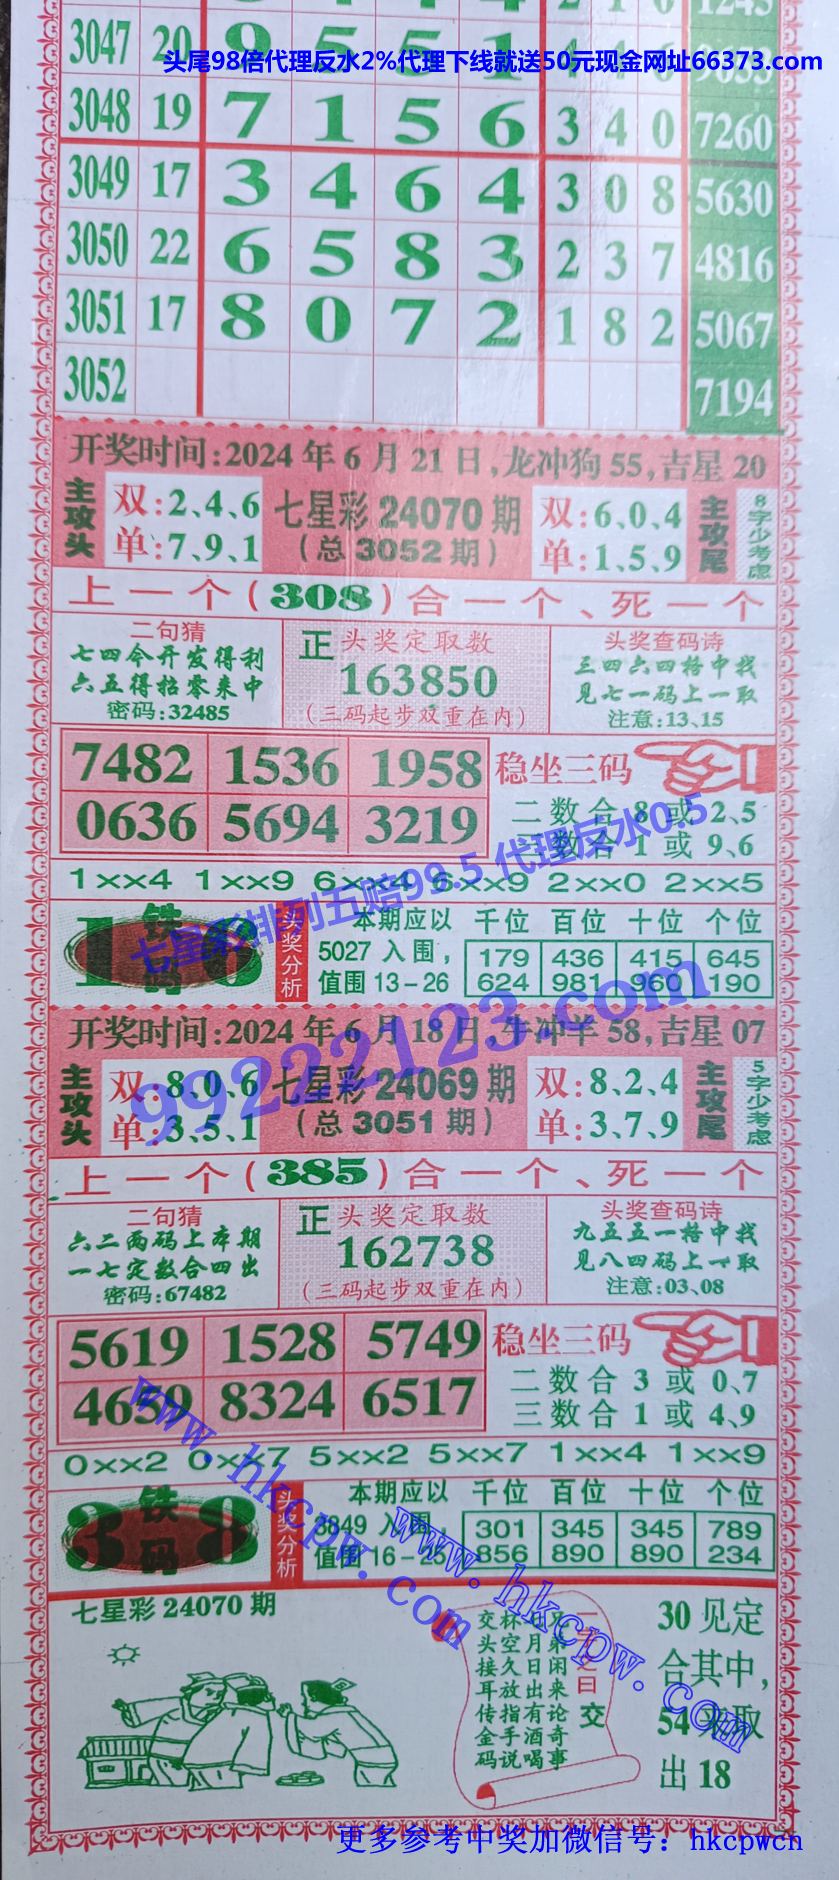 1245
3047 20 9 5 5 1 4 4 6 9633
头尾98倍代理反水2%代理下线就送50元现金网址66373.com
3048 19 7 1 5 6 3 4 0 7260
3049 17 3 4 6 4 3 0 8 5630
3050 22 6 5 8 3 2 3 7 4816
3051 17 8 0 7 2 1 8 2 5067
3052 7194
开奖时间:2024年6月21日,龙冲狗55,吉星20
主攻头 双:2、4、6 七星彩24070期 双:6、0、4 主攻尾 8字少考虑
单:7、9、1 (总3052期) 单:1、5、9
上一个(308)合一个、死一个
二句猜
七四今开发得利
六五得拈零来中
密码:32485
正 头奖定取数
163850
(三码起步双重在内)
头奖查码诗
三四六四格中找
见七一码上一取
注意:13、15
7482 1536 1958 稳坐三码
0636 5694 3219
二数合8或2、5
三数合1或9、6
1××4 1××9 6××4 6××9 2××0 2××5
1 铁码 6
头奖分析 本期应以 千位 百位 十位 个位
5027入围, 179 436 415 645
值围13-26 624 981 960 190
七星彩排列五赔99.5 代理反水0.5
99222123.com
开奖时间:2024年6月18日,牛冲羊58,吉星07
主攻头 双:8、0、6 七星彩24069期 双:8、2、4 主攻尾 5字少考虑
单:3、5、1 (总3051期) 单:3、7、9
上一个(385)合一个、死一个
二句猜
六二两码上本期
一七定数合四出
密码:67482
正 头奖定取数
162738
(三码起步双重在内)
头奖查码诗
九五五一格中找
见八四码上一取
注意:03、08
5619 1528 5749 稳坐三码
4659 8324 6517
二数合3或0、7
三数合1或4、9
0××2 0××7 5××2 5××7 1××4 1××9
3 铁码 8
头奖分析 本期应以 千位 百位 十位 个位
3849入围, 301 345 345 789
值围16-25 856 890 890 234
www.hkcpw.com
www.hkcpw.com
七星彩24070期
曰 交
闲来论奇事
日出有酒喝
久放指手说
交头接耳传金码
30见定
合其中,
54来取
出18
更多参考中奖加微信号：hkcpwcn